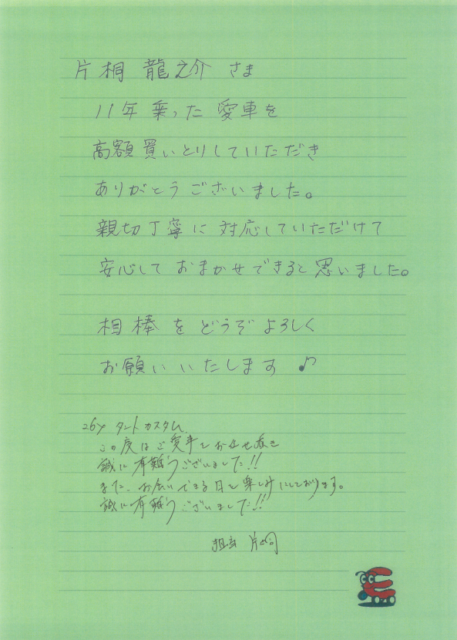 片桐 龍之介 さま
11年 乗った 愛車を
高額 買いとりしていただき
ありがとうございました。
親切丁寧に 対応していただけて
安心して おまかせできると思いました。
相棒を どうぞ よろしく
お願いいたします♪
26y タントカスタム
この度はご愛車をお任せ頂き
誠に有難うございました!!
また、お会いできる日を楽しみにしております。
誠に有難うございました!!
担当 片桐